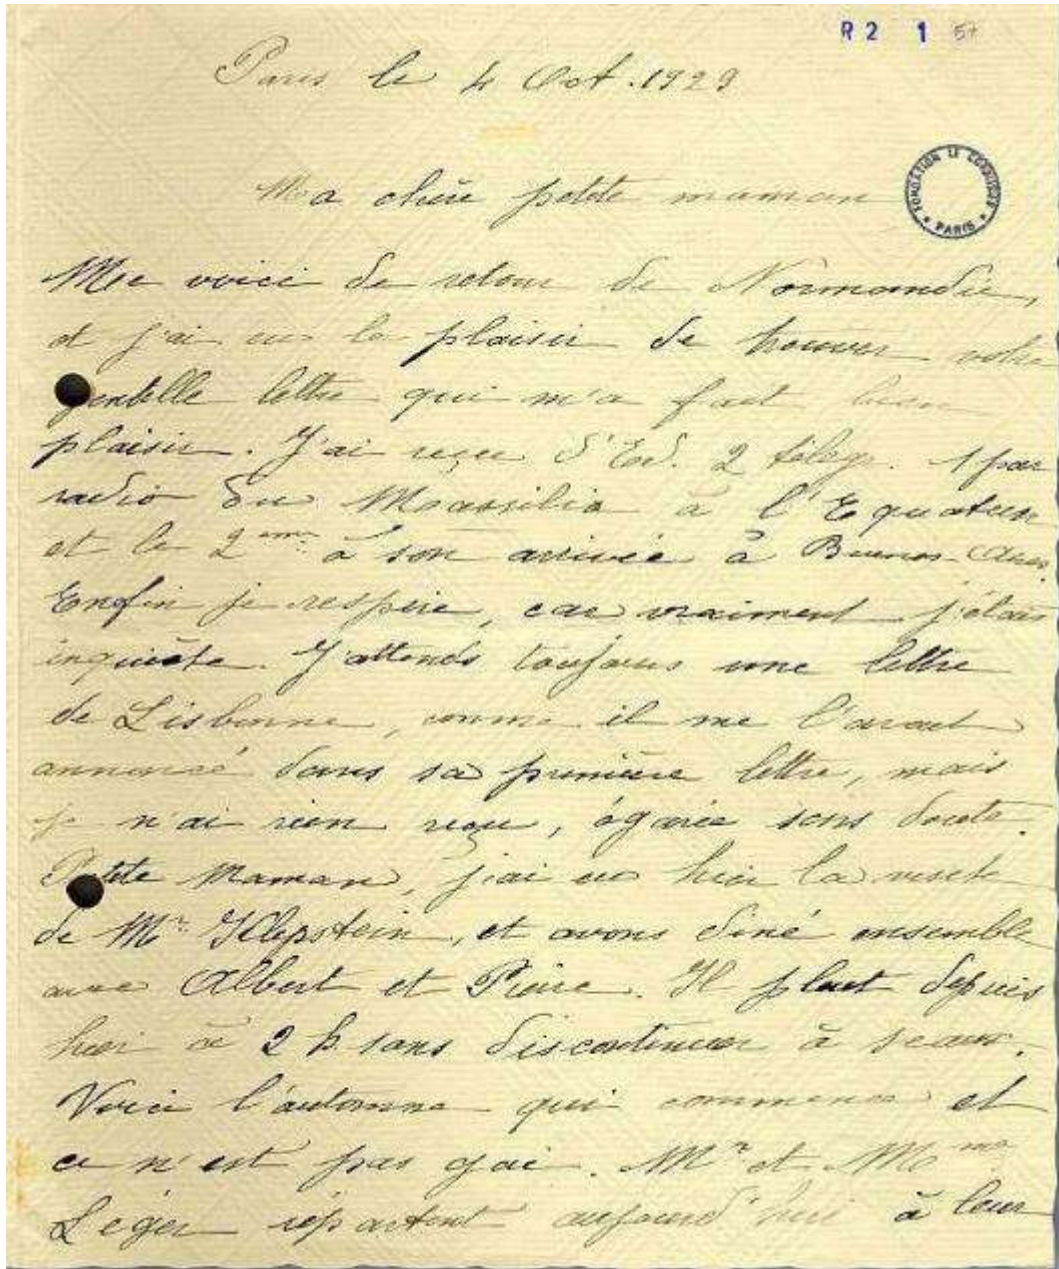 R2 1 57
Paris le 4 Oct. 1929
FONDATION LE CORBUSIER * PARIS *
Ma chère petite maman
Me voici de retour de Normandie,
et j'ai eu le plaisir de trouver votre
gentille lettre qui m'a fait bien
plaisir. J'ai reçu d'Ed. 2 télégr. 1 par
radio du Massilia à l'Equateur
et le 2em. à son arrivée à Buenos-Aires.
Enfin je respire, car vraiment j'étais
inquiète. J'attends toujours une lettre
de Lisbonne, comme il me l'avait
annoncé dans sa première lettre, mais
je n'ai rien reçu, égarée sans doute.
Petite Maman, j'ai eu hier la visite
de Mr. Klipstein, et avons diné ensemble
avec Albert et Pierre. Il pleut depuis
hier à 2 h. sans discontinuer à seaux.
Voici l'automne qui commence et
ce n'est pas gai. Mr et Mme
Leger repartent aujourd'hui à leur